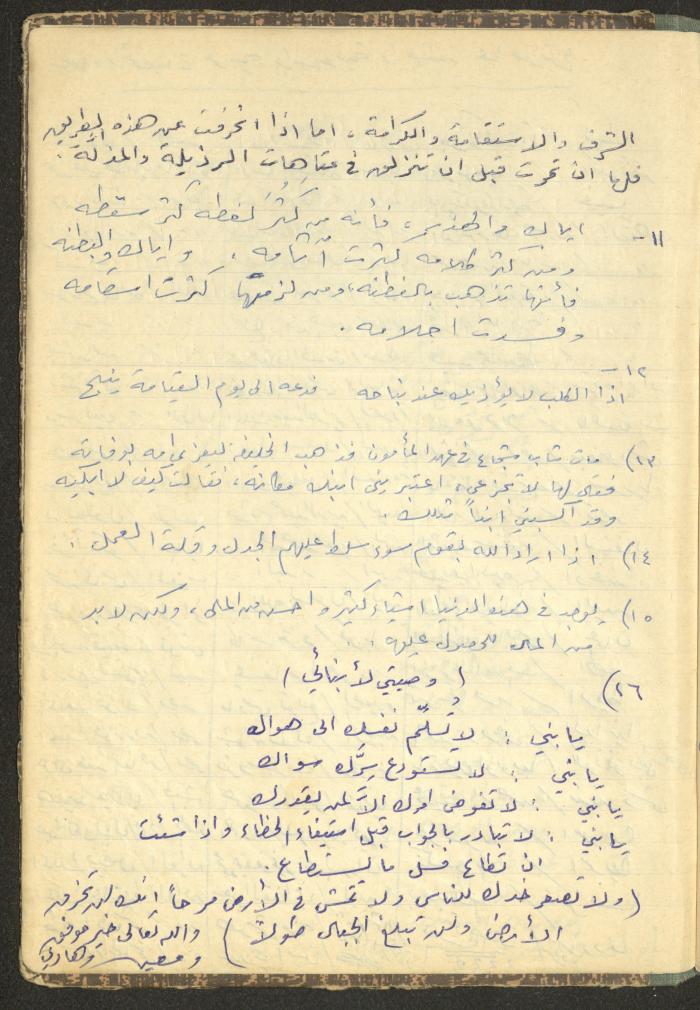 الشرف والاستقامة والكرامة، اما اذا انحرفت عن هذه الطريق
فلها ان تموت قبل ان تنزلق في متاهات الرذيلة والمذلة.
١١- اياك والهذر، فأنه من كَثُرَ لغطه كثر سقطه
ومن كثر كلامه كثرت آثامه، واياك والبطنه
فأنها تذهب بالفطنه، ومن لزمها كثرت اسقامه
وفسدت احلامه.
١٢-
اذا الكلب لا يؤذيك عند نباحه فدعه الى يوم القيامة ينبح
١٣) مات شاب شجاع في عهد المأمون فذهب الخليفه ليعزي امه بوفاته
فقال لها لا تجزعي، اعتبريني ابنك مكانه، فقالت كيف لا ابكيه
وقد اكسبني ابناً مثلك.
١٤) اذا اراد الله بقوم سوء سلط عليهم الجدل وقلة العمل.
١٥) يوجد في هذه الدنيا اشياء كثيرة احسن من المال، ولكن لا بد
من المال للحصول عليه.
١٦) (وصيتي لأبنائي)
يا بني : لا تسلّم نفسك الى هواك
يا بني : لا تستودع سِرَّك سواك
يا بني : لا تفوض امرك الاّ لمن يقدرك
يا بني : لا تبادر بالجواب قبل استيفاء الخطاء واذا شئت
ان تطاع فسل ما يستطاع.
(ولا تصعر خدك للناس ولا تمش في الأرض مرحاً انك لن تخرق
الأرض ولن تبلغ الجبال طولاً) والله تعالى خير موفق
ومعين وهادي